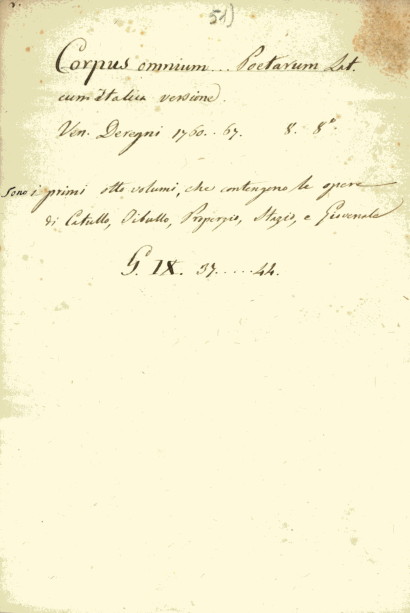 51)
Corpus omnium... Poetarum Lat.
cum italica versione.
Ven. Deregni 1760..67. 8. 8°
Sono i primi otto volumi, che contengono le opere
di Catullo, Tibullo, Properzio, Stazio, e Giovenale
G. IX. 37.....44.